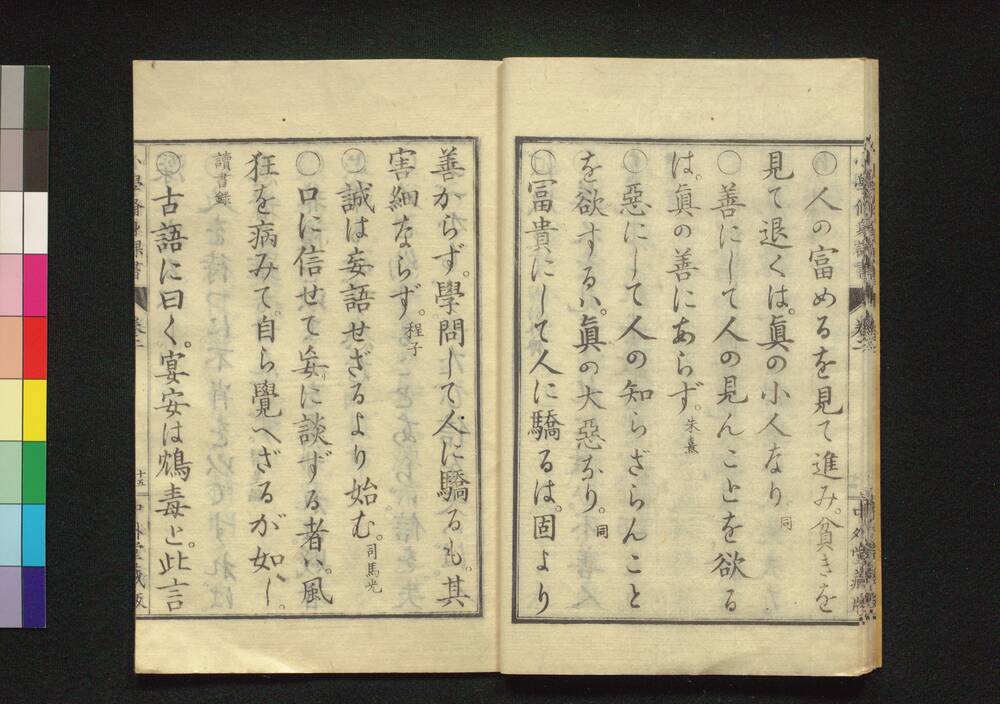 〇人の富めるを見て進み。貧きを
見て退くは。眞の小人なり 同
〇善にして人の見んことを欲る
は。眞の善にあらず。朱熹
〇惡にして人の知らざらんこと
を欲するハ。眞の大惡なり。同
〇冨貴にして人に驕るは。固より
善からず。學問して人に驕るも。其
害細ならず。程子
〇誠は妄語せざるより始む。司馬光
〇口に信せて妄に談ずる者ハ。風
狂を病みて。自ら覺へざるが如し。
讀書録
〇古語に曰く。宴安は鴆毒と。此言
卷二
十五